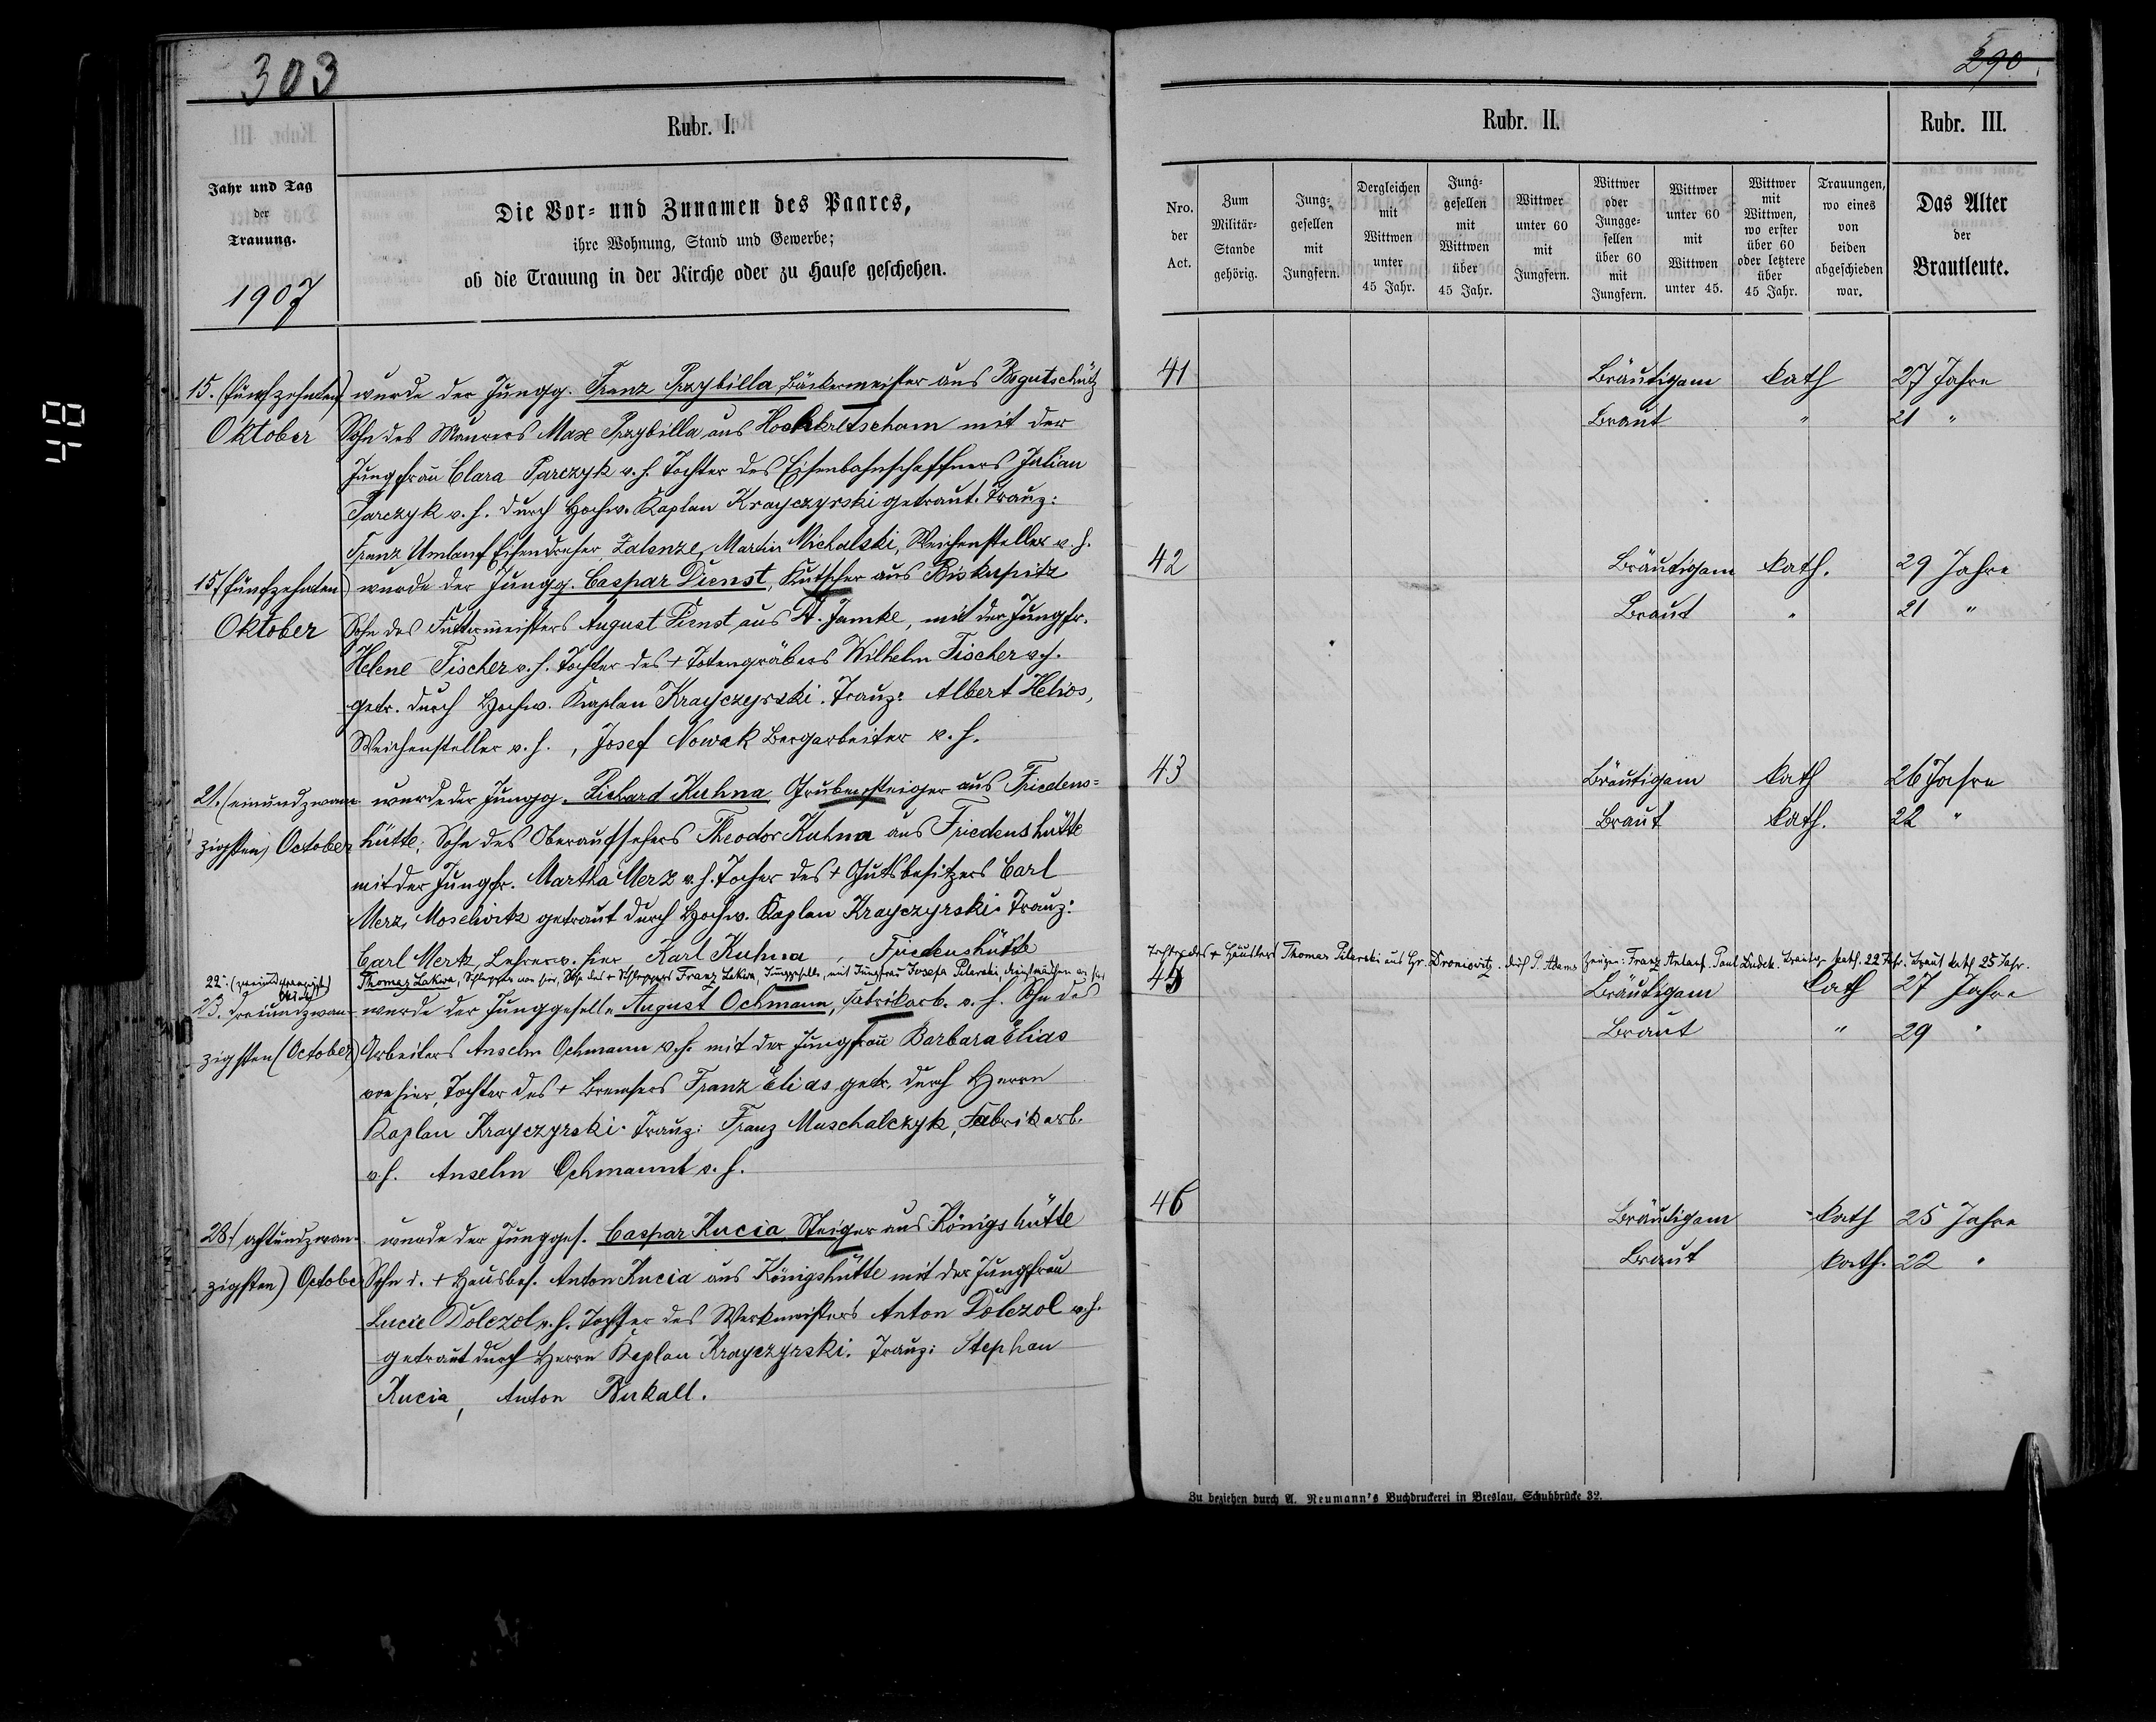 303
290
Rubr. I.
Rubr. II.
Rubr. III.
Jahr und Tag
der
Trauung.
1907
Die Vor- und Zunamen des Paares,
ihre Wohnung, Stand und Gewerbe;
ob die Trauung in der Kirche oder zu Hause geschehen.
Nro. der Act.
Zum Militär-Stande gehörig.
Jung-gesellen mit Jungfern.
Dergleichen mit Wittwen unter 45 Jahr.
Jung-gesellen mit Wittwen über 45 Jahr.
Wittwer unter 60 mit Jungfern.
Wittwer oder Jungge-sellen über 60 mit Jungfern.
Wittwer unter 60 mit Wittwen unter 45.
Wittwer mit Wittwen, wo erster über 60 oder letztere über 45 Jahr.
Trauungen, wo eines von beiden abgeschieden war.
Das Alter
der
Brautleute.
15. (fünfzehnten) wurde der Jungg. Franz Przybilla Bäckermeister aus Bogutschütz
Oktober Sohn des Maurers Max Przybilla aus Hochkretscham mit der
Jungfrau Clara Parczyk v. h. Tochter des Eisenbahnschaffners Julian
Parczyk v. h. durch Hochw. Kaplan Krayczyrski getraut. Trauz:
Franz Umlauf Eisendreher Zalenze, Martin Michalski, Weichensteller v. h.
41 Bräutigam kath 27 Jahre
Braut " 21 "
15. (fünfzehnten) wurde der Jungg. Caspar Dienst, Kutscher aus Biskupitz
Oktober Sohn des Futtermeisters August Dienst aus St. Jamke, mit der Jungfr.
Helene Fischer v. h. Tochter des + Totengräbers Wilhelm Fischer v. h.
getr. durch Hochw. Kaplan Krayczyrski. Trauz: Albert Helios,
Weichensteller v. h., Josef Nowak Bergarbeiter v. h.
42 Bräutigam kath. 29 Jahre
Braut " 21 "
21. (einundzwan- wurde der Jungg. Richard Kuhna Grubensteiger aus Friedens-
zigsten) October hütte, Sohn des Oberaufsehers Theodor Kuhna aus Friedenshütte
mit der Jungfr. Martha Merz v. h. Tocher des + Gutsbesitzers Carl
Merz, Moselwitz getraut durch Hochw. Kaplan Krayczyrski. Trauz:
Carl Mertz, Lehrer v. hier, Karl Kuhna, Friedenshütte
43 Bräutigam kath 26 Jahre
Braut kath. 22 "
22. Thomas Lakwa, Schlepper von hier, Sohn des + Schleppers Franz Lakwa, Junggeselle, mit Jungfrau Josefa Pilarski, Dienstmädchen von hier
Tochter des + Häuslers Thomas Pilarski aus Gr. Droniowitz. durch P. Adams Zeugen: Franz Paul Bräutig. kath. 22 Jahr. Braut kath 25 Jahr.
23. dreiundzwan- wurde der Junggeselle August Ochmann, Fabrikarb. v. h. Sohn des
zigsten (October) Arbeiters Anselm Ochmann v. h. mit der Jungfrau Barbara Elias
von hier, Tochter des + Bremsers Franz Elias getr. durch Herrn
Kaplan Krayczyrski. Trauz: Franz Muschalczyk, Fabrikarb.
v. h. Anselm Ochmann v. h.
45 Bräutigam kath 27 Jahre
Braut " 29 "
28. (achtundzwan- wurde der Jungges. Caspar Kucia Steiger aus Königshütte
zigsten) October Sohn d. + Hausbes. Anton Kucia aus Königshütte mit der Jungfrau
Lucie Dolezol v. h. Tochter des Werkmeisters Anton Dolezol v. h.
getraut durch Herrn Kaplan Krayczyrski. Trauz: Stephan
Kucia, Anton
46 Bräutigam kath 25 Jahre
Braut kath. 22 "
Zu beziehen durch A. Neumann's Buchdruckerei in Breslau, Schuhbrücke 32.
48